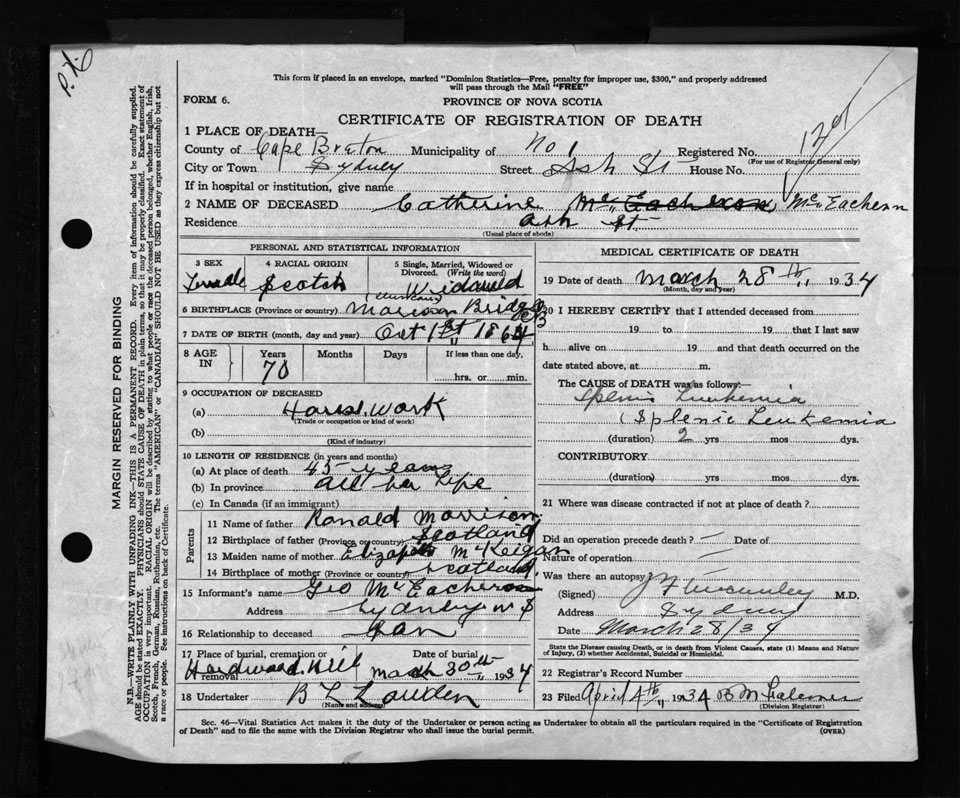 P.X.
This form if placed in an envelope, marked "Dominion Statistics—Free, penalty for improper use, $300," and properly addressed
will pass through the Mail "FREE"
FORM 6.
PROVINCE OF NOVA SCOTIA
CERTIFICATE OF REGISTRATION OF DEATH
1 PLACE OF DEATH—
County of Cape Breton Municipality of No 1 Registered No.
(For use of Registrar General only)
City or Town Sydney Street Ash St House No.
If in hospital or institution, give name
2 NAME OF DECEASED Catherine McEachern McEachern
Residence Ash St
(Usual place of abode)
PERSONAL AND STATISTICAL INFORMATION
3 SEX Female
4 RACIAL ORIGIN Scotch
5 Single, Married, Widowed or Divorced. (Write the word)
Widowed
6 BIRTHPLACE (Province or country) Marion Bridge CB
7 DATE OF BIRTH (month, day and year) Oct 1st 1864
8 AGE IN Years Months Days If less than one day,
70 hrs. or min.
9 OCCUPATION OF DECEASED
(a) House work
(Trade or occupation or kind of work)
(b)
(Kind of industry)
10 LENGTH OF RESIDENCE (in years and months)
(a) At place of death 45 years
(b) In province all her life
(c) In Canada (if an immigrant)
Parents
11 Name of father Ronald Morrison
12 Birthplace of father (Province or country) Scotland
13 Maiden name of mother Elizabeth McKeigan
14 Birthplace of mother (Province or country) Scotland
15 Informant's name Geo McEachern
Address Sydney N S
16 Relationship to deceased Son
17 Place of burial, cremation or removal Date of burial
Hardwood Hill March 30th 1934
18 Undertaker B L Lowden
(Name and address)
MEDICAL CERTIFICATE OF DEATH
19 Date of death March 28th 1934
(Month, day and year)
20 I HEREBY CERTIFY that I attended deceased from
19 to 19 that I last saw
h alive on 19 and that death occurred on the
date stated above, at m.
The CAUSE of DEATH was as follows:—
Splenic Leukemia
(Splenic Leukemia
(duration) 2 yrs mos dys.
CONTRIBUTORY
(duration) yrs mos dys.
21 Where was disease contracted if not at place of death?
Did an operation precede death? — Date of
Nature of operation —
Was there an autopsy
(Signed) M.D.
Address Sydney
Date March 28/34
State the Disease causing Death, or in death from Violent Causes, state (1) Means and Nature
of Injury, (2) whether Accidental, Suicidal or Homicidal.
22 Registrar's Record Number
23 Filed April 4th 1934 B M
(Division Registrar)
Sec. 46—Vital Statistics Act makes it the duty of the Undertaker or person acting as Undertaker to obtain all the particulars required in the "Certificate of Registration
of Death" and to file the same with the Division Registrar who shall issue the burial permit. (OVER)
MARGIN RESERVED FOR BINDING
N.B.—WRITE PLAINLY WITH UNFADING INK—THIS IS A PERMANENT RECORD. Every item of information should be carefully supplied.
AGE should be stated EXACTLY. PHYSICIANS should STATE CAUSE OF DEATH in plain terms, so that it may be properly classified. Exact statement of
OCCUPATION is very important. RACIAL ORIGIN will be described by stating to what people or race the deceased person belonged, whether English, Irish,
Scotch, French, German, Russian, Ruthenian, etc. The terms "AMERICAN" or "CANADIAN" SHOULD NOT BE USED as they express citizenship but not
a race or people. See instructions on back of Certificate.